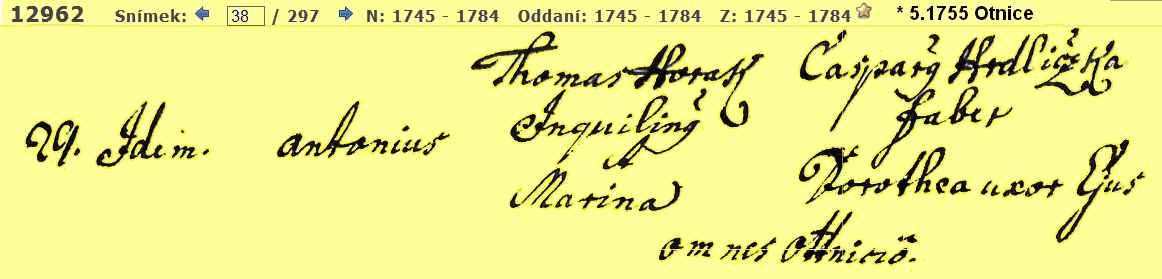 12962 Snímek: 38 / 297 N: 1745 - 1784 Oddaní: 1745 - 1784 Z: 1745 - 1784 * 5.1755 Otnice
Thomas Horak Casparg Hrdliczka
Inquiling faber
29. Idem. antonius
et
Marina Dorothea uxor Ejus
omnes Ottnicio.